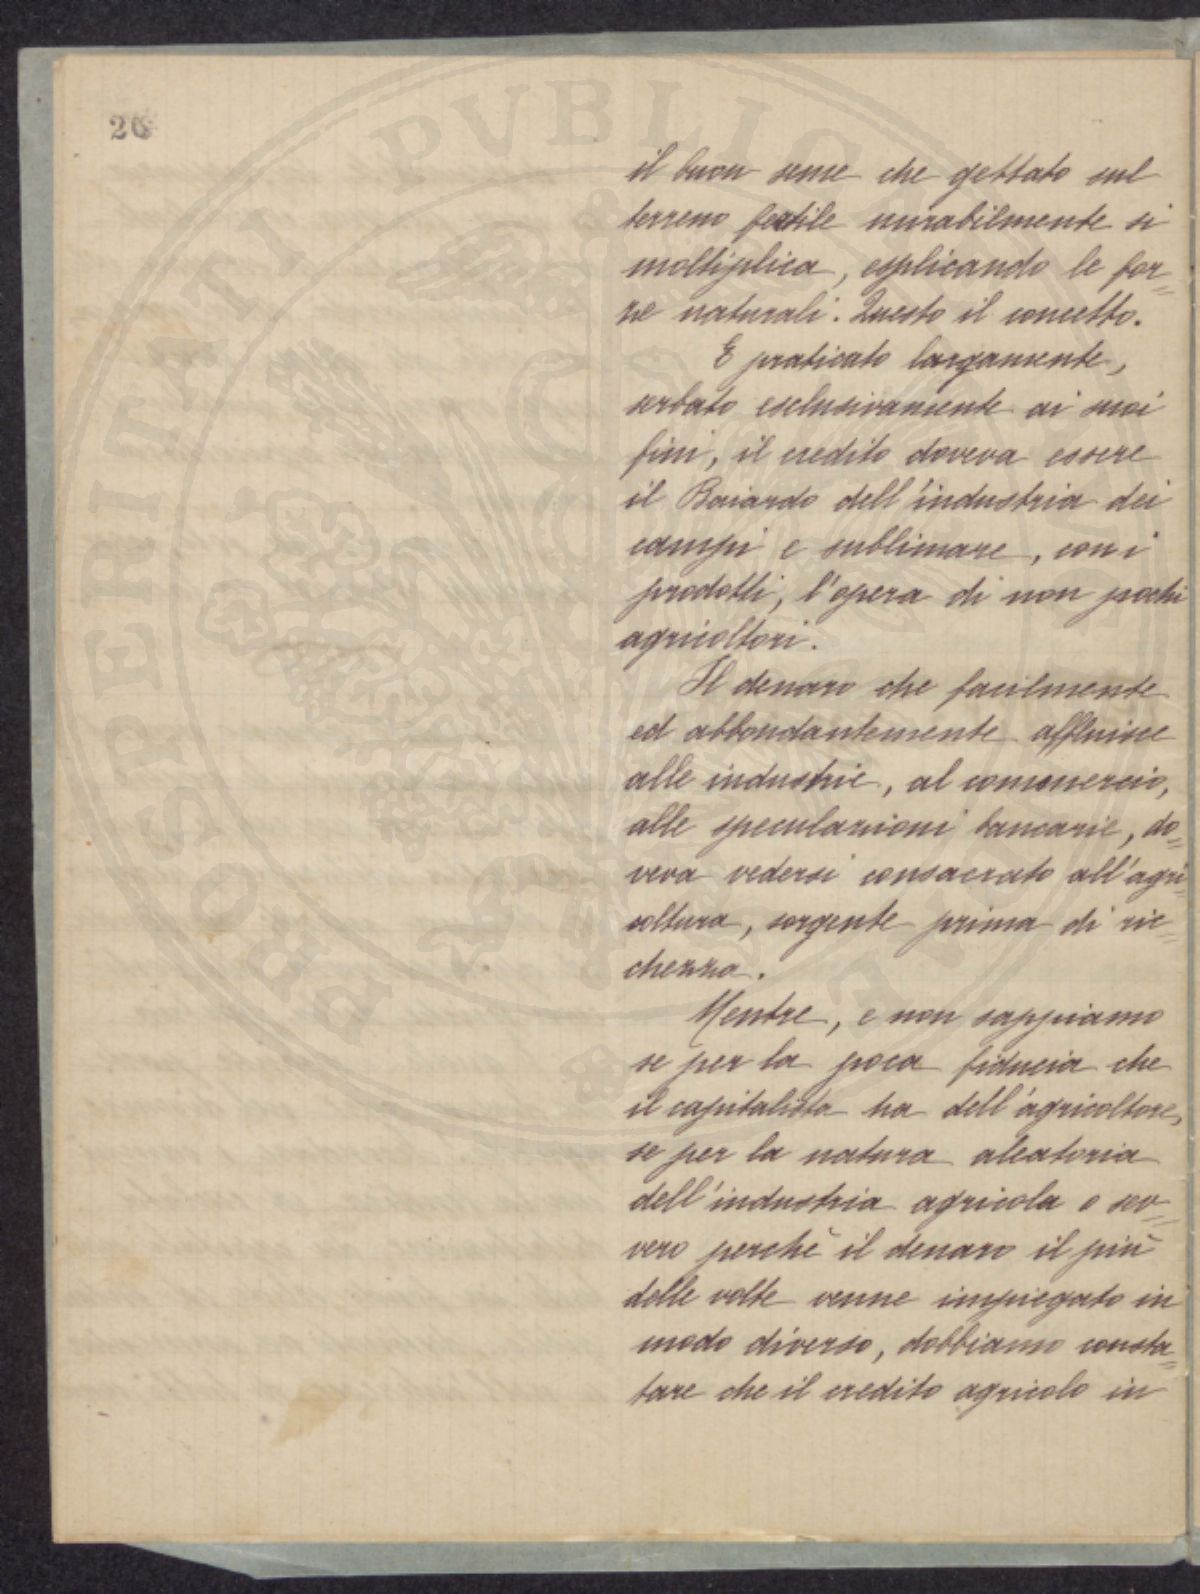 26
il buon seme che gettato sul
terreno fertile mirabilmente si
moltiplica, esplicando le for=
ze naturali. Questo il concetto.
E praticato largamente,
serbato esclusivamente ai suoi
fini, il credito doveva essere
il Baiardo dell'industria dei
campi e sublimare, con i
prodotti, l'opera di non pochi
agricoltori.
Il denaro che facilmente
ed abbondantemente affluisce
alle industrie, al commercio,
alle speculazioni bancarie, do=
veva vedersi consacrato all'agri=
coltura, sorgente prima di ric=
chezza.
Mentre, e non sappiamo
se per la poca fiducia che
il capitalista ha dell'agricoltore,
se per la natura aleatoria
dell'industria agricola o sev=
vero perchè il denaro il più
delle volte venne impiegato in
modo diverso, dobbiamo consta=
tare che il credito agricolo in
PROSPERITATI PVBLICAE